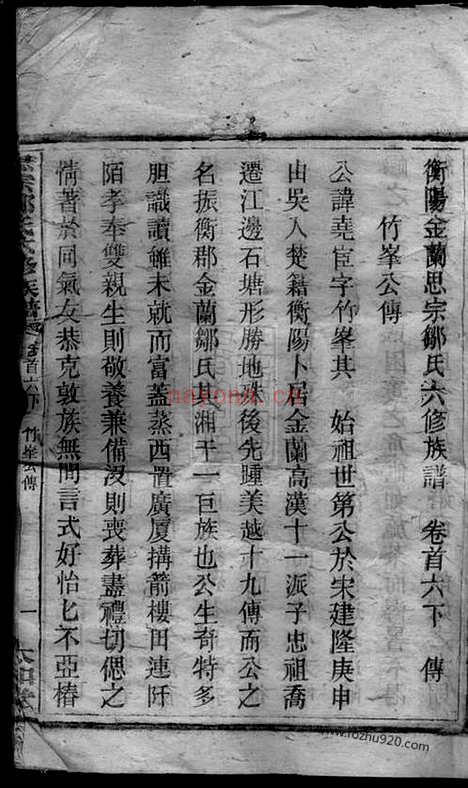 衡陽金蘭思宗鄒氏六修族譜 卷首六下 傳
竹峯公傳
公諱堯宦字竹峯其 始祖世第公於宋建隆庚申
由吳入楚籍衡陽卜居金蘭高漢十一派子忠祖喬
遷江邊石塘形勝地殊後先踵美越十九傳而公之
名振衡郡金蘭鄒氏其湘干一巨族也公生奇特多
胆識讀雖未就而富蓋蒸西置廣厦搆箭樓田連阡
陌孝奉雙親生則敬養兼備沒則喪葬盡禮切偲之
情著於同氣友恭克敦族無間言式好怡匕不亞椿
氏六修族譜 卷首六下 竹峯公傳 一
nayona.cn
www.rozhu920.com